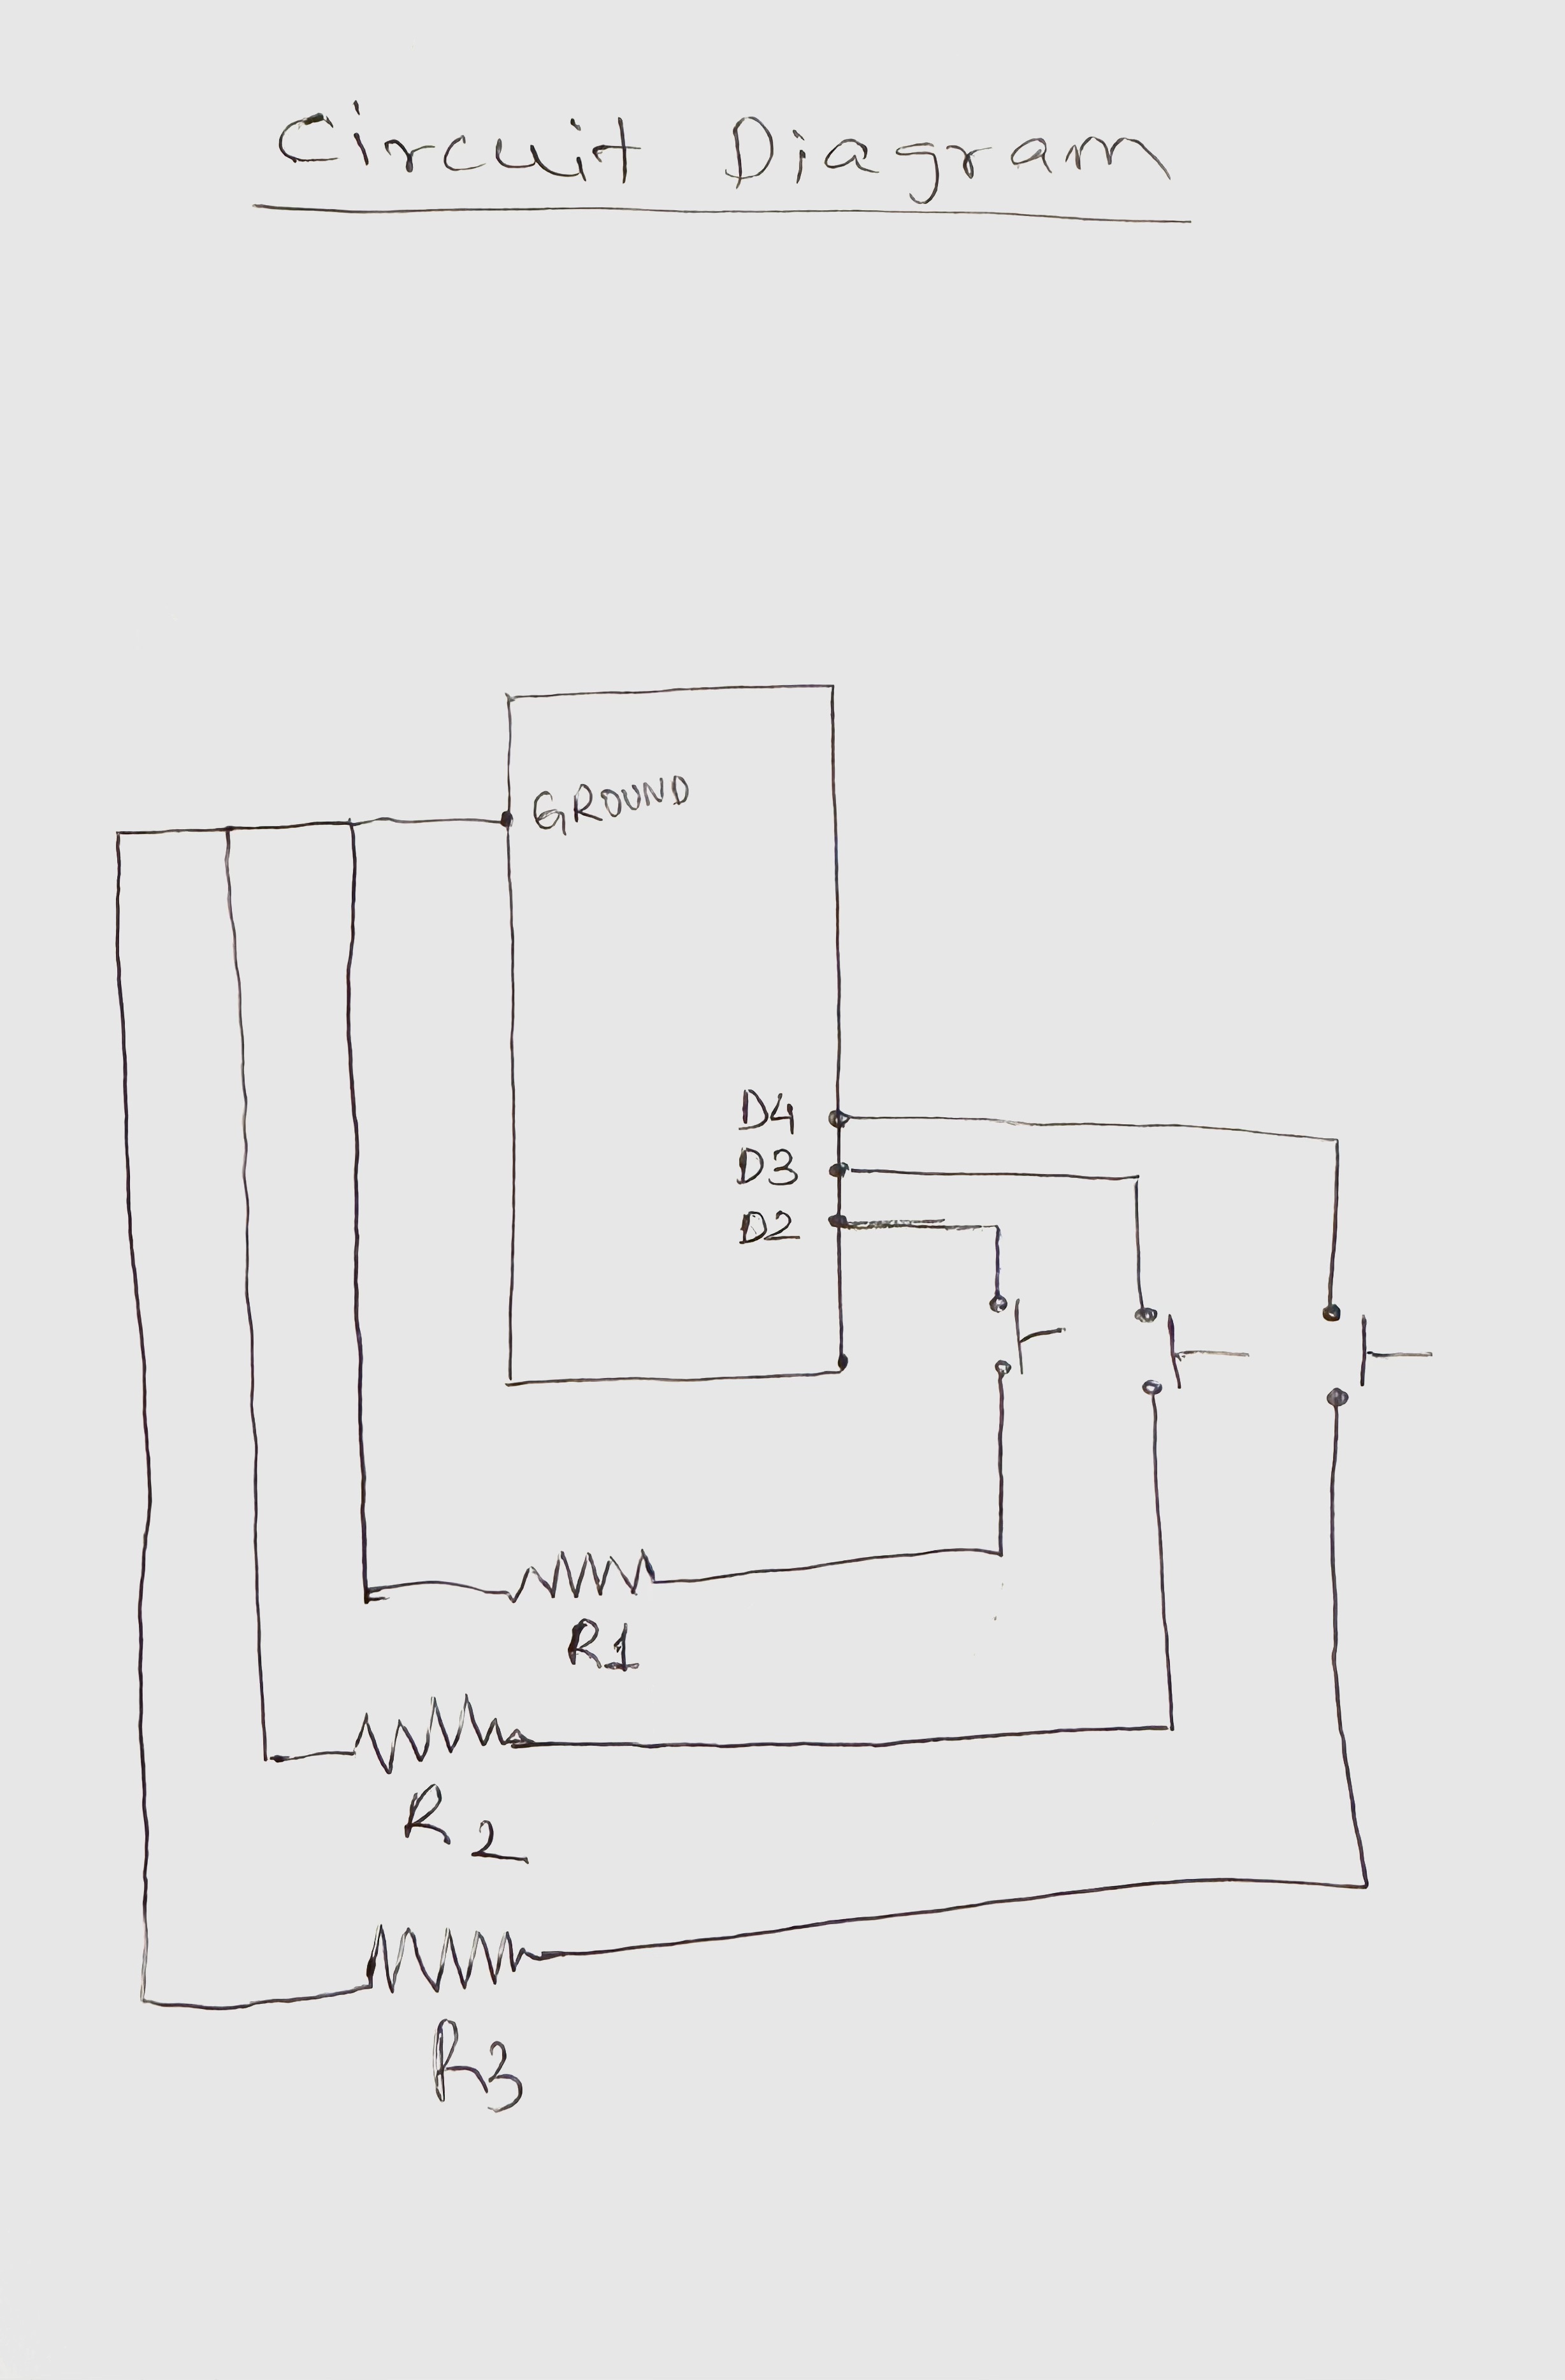 Circuit Diagram
GROUND
D4
D3
D2
R1
R2
R3